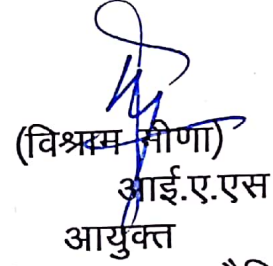 (विश्राम मीणा)
आई.ए.एस
आयुक्त